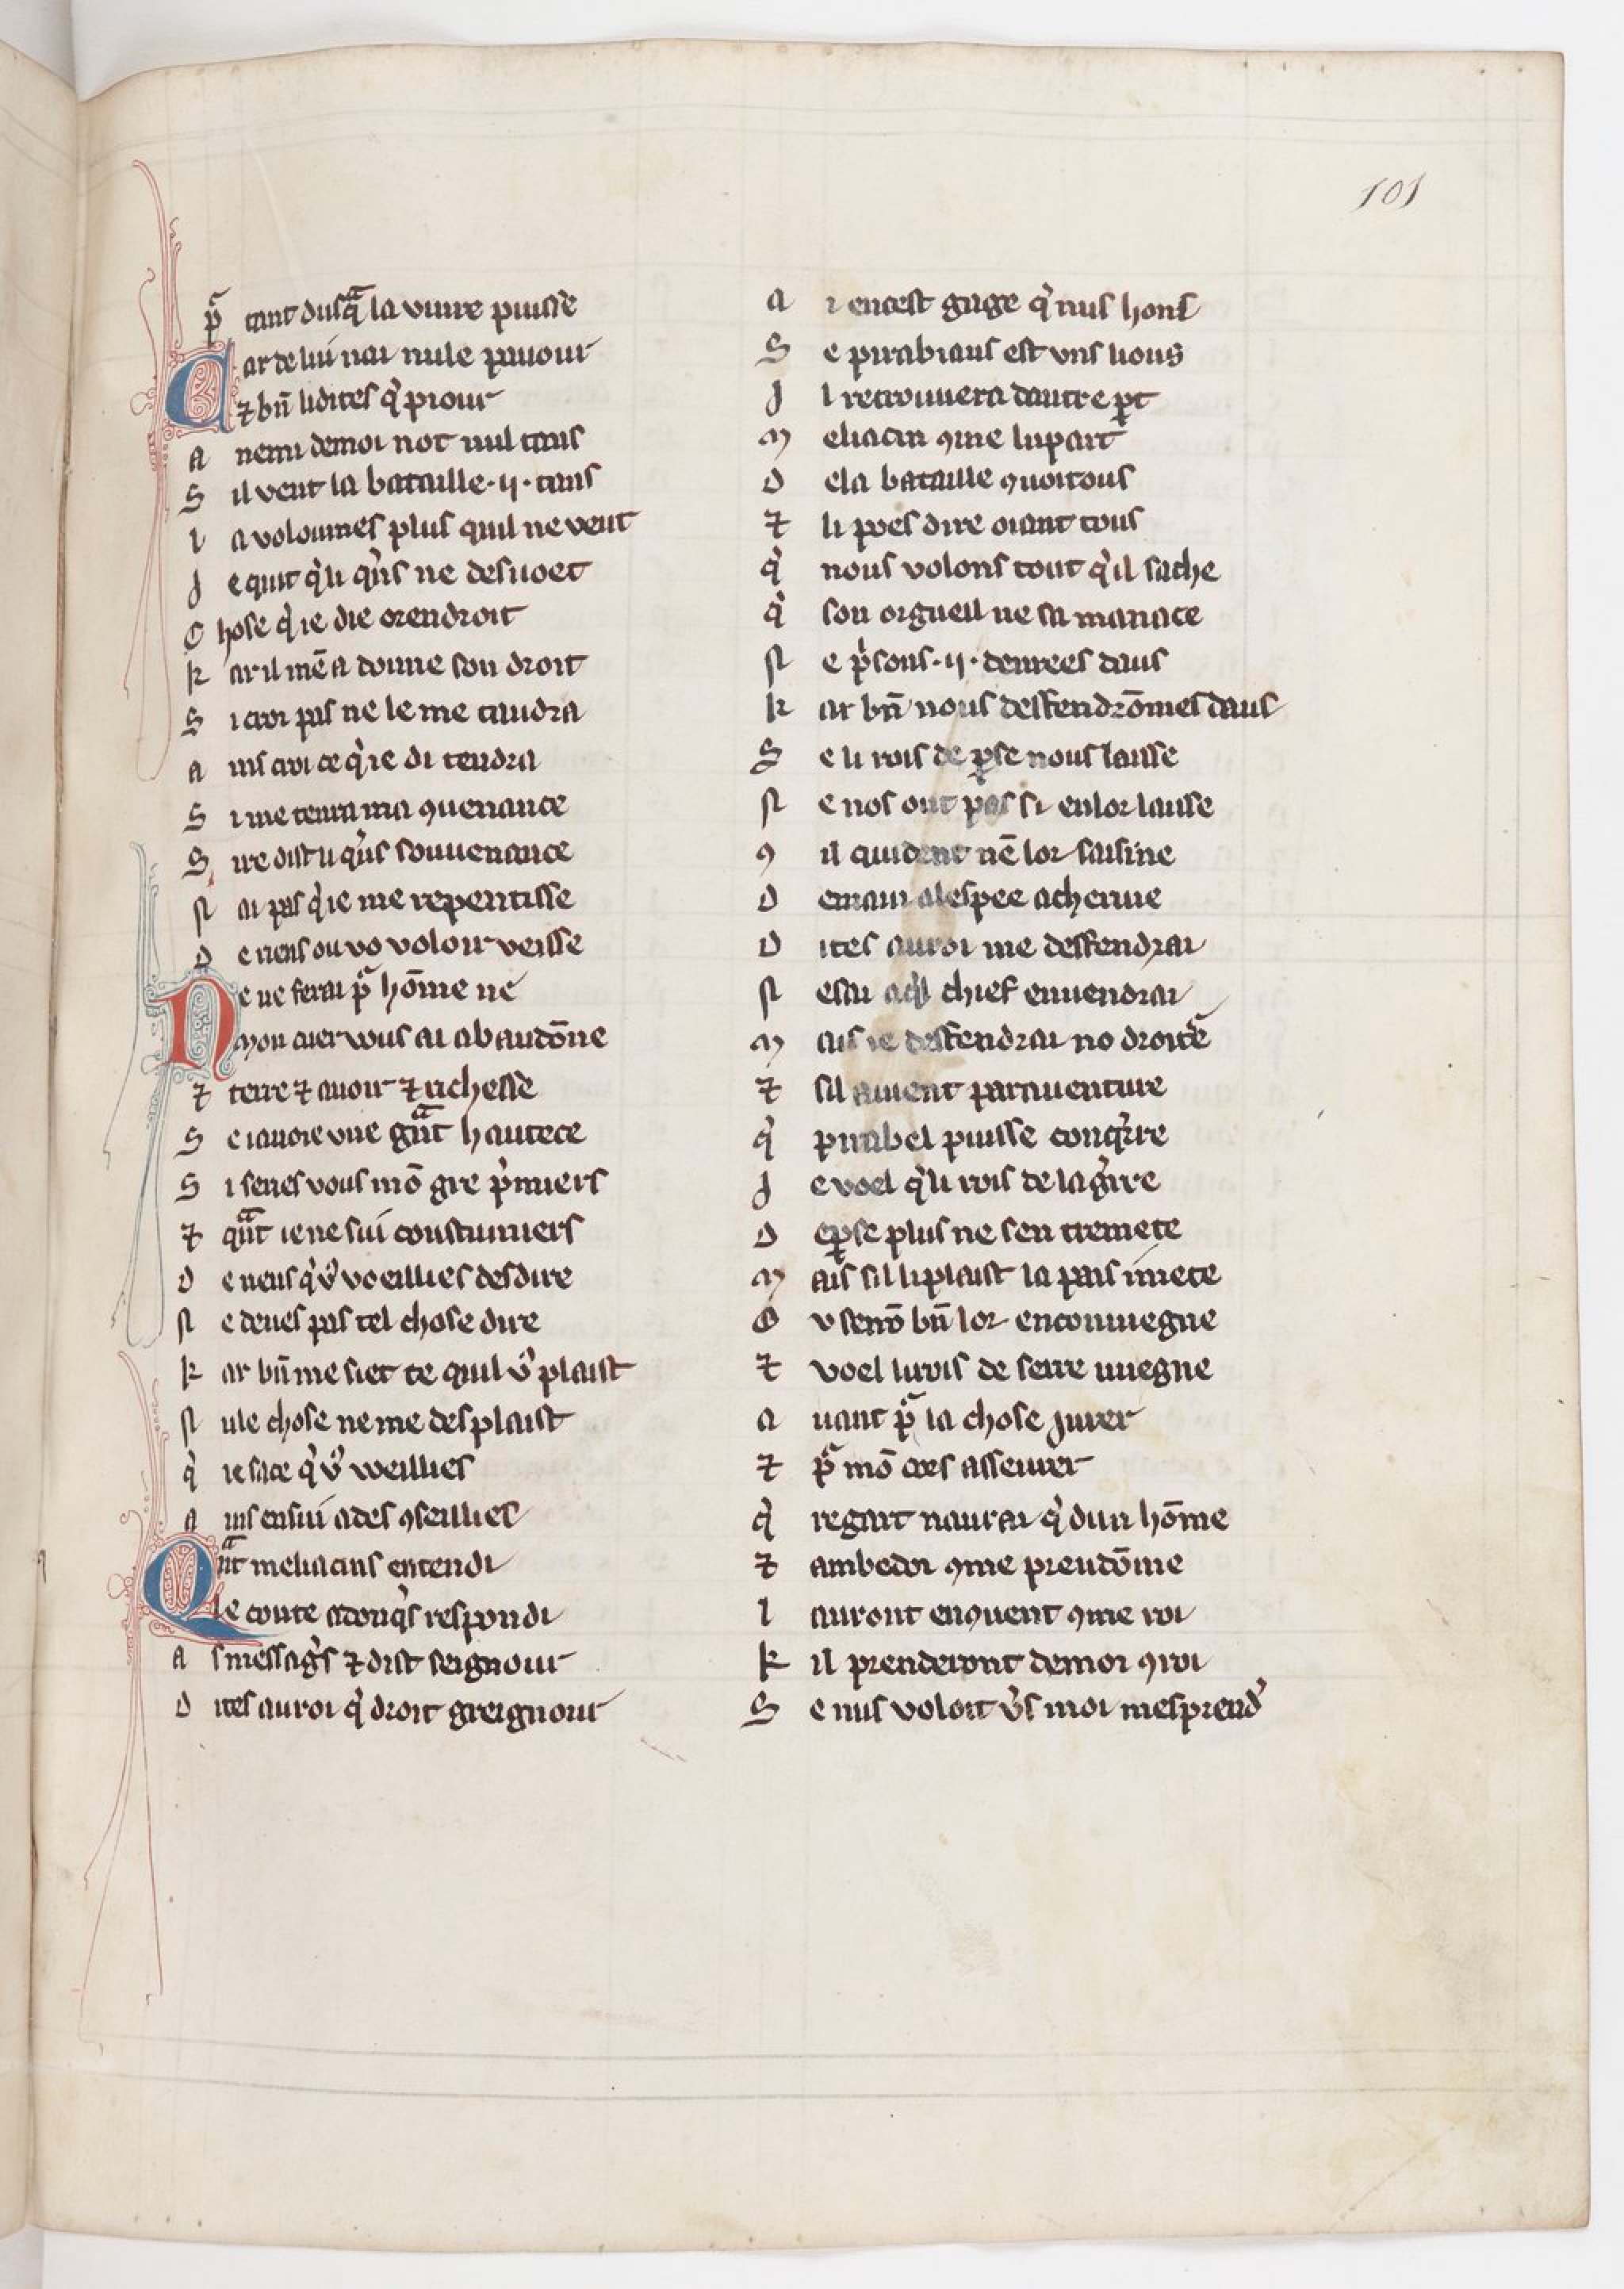 101
pᵃ tant dusqᵃ la viure puisse
Car de lui nai nule paour
⁊ bn̄ li dites q̓ priour
a nemi de moi not nul tans
S il veut la bataille ·ii· tans
l a voloumes plus quil ne veut
J e quit q̓ li q̓ns ne desuoet
C hose q̓ ie die orendroit
k ar il mē a donne son droit
S i croi pas ne le me taudra
a ins croi ce q̓ ie di tendra
S i me tenra ma ꝯuenance
S ire dist li q̓ns souuenance
N ai pas q̓ ie me repentisse
D e riens ou vo voloir veisse
Ne ne ferai pᵃ hōme ne
Mon cuer vous ai abandōne
⁊ terre ⁊ auoir ⁊ richesse
S e iauoie vne gᵃnt hautece
S i series vous mō gre p̓miers
⁊ qᵃnt ie ne sui coustumiers
D e riens q̓ vꝰ voeillies desdire
N e deues pas tel chose dire
k ar bn̄ me siet ce quil vꝰ plaist
N ule chose ne me desplaist
q̓ ie sace q̓ vꝰ weillies
a ins ensui ades ꝯseillies
Qᵃnt meliacins entendi
le conte adonq̓s respondi
a s messag̓s ⁊ dist seignour
D ites au roi q̓ droit greignour
a i en cest gage q̓ nus hons
S e pirabiaus est vns hons
J l retrouuera dautre ꝑt
M eliacin ꝯme lupart
D e la bataille ꝯuoitous
⁊ li poes dire oiant tous
q̓ nous volons tout q̓ il sache
q̓ son orgueil ne sa manace
N e p̓sons ·ii· denrees daus
k ar bn̄ nous deffendrōmes daus
S e li rois de ꝑse nous laisse
N e nos ont pas si en lor laisse
ꝯ il quident nē lor saisine
D emain a lespee acherine
D ites au roi me deffendrai
N e sai a q̓l chief en uendrai
M ais ie deffendrai no droit̓e
⁊ sil auient parauenture
q̓ pirabel puisse conq̓rre
J e voel q̓ li rois de la g̓rre
D e ꝑse plus ne sen tremete
M ais sil li plaist la pais i mete
O v se nō bn̄ lor en conuiegne
⁊ voel li rois de serre uiegne
a uant pᵃ la chose jurer
⁊ pᵃ mō cors asseurer
q̓ regart naurai q̓ dun hōme
⁊ ambedoi ꝯme preudōme
l auront enꝯuent ꝯme roi
k il prenderont de moi ꝯroi
S e nus voloit v̓s moi mesprend̓